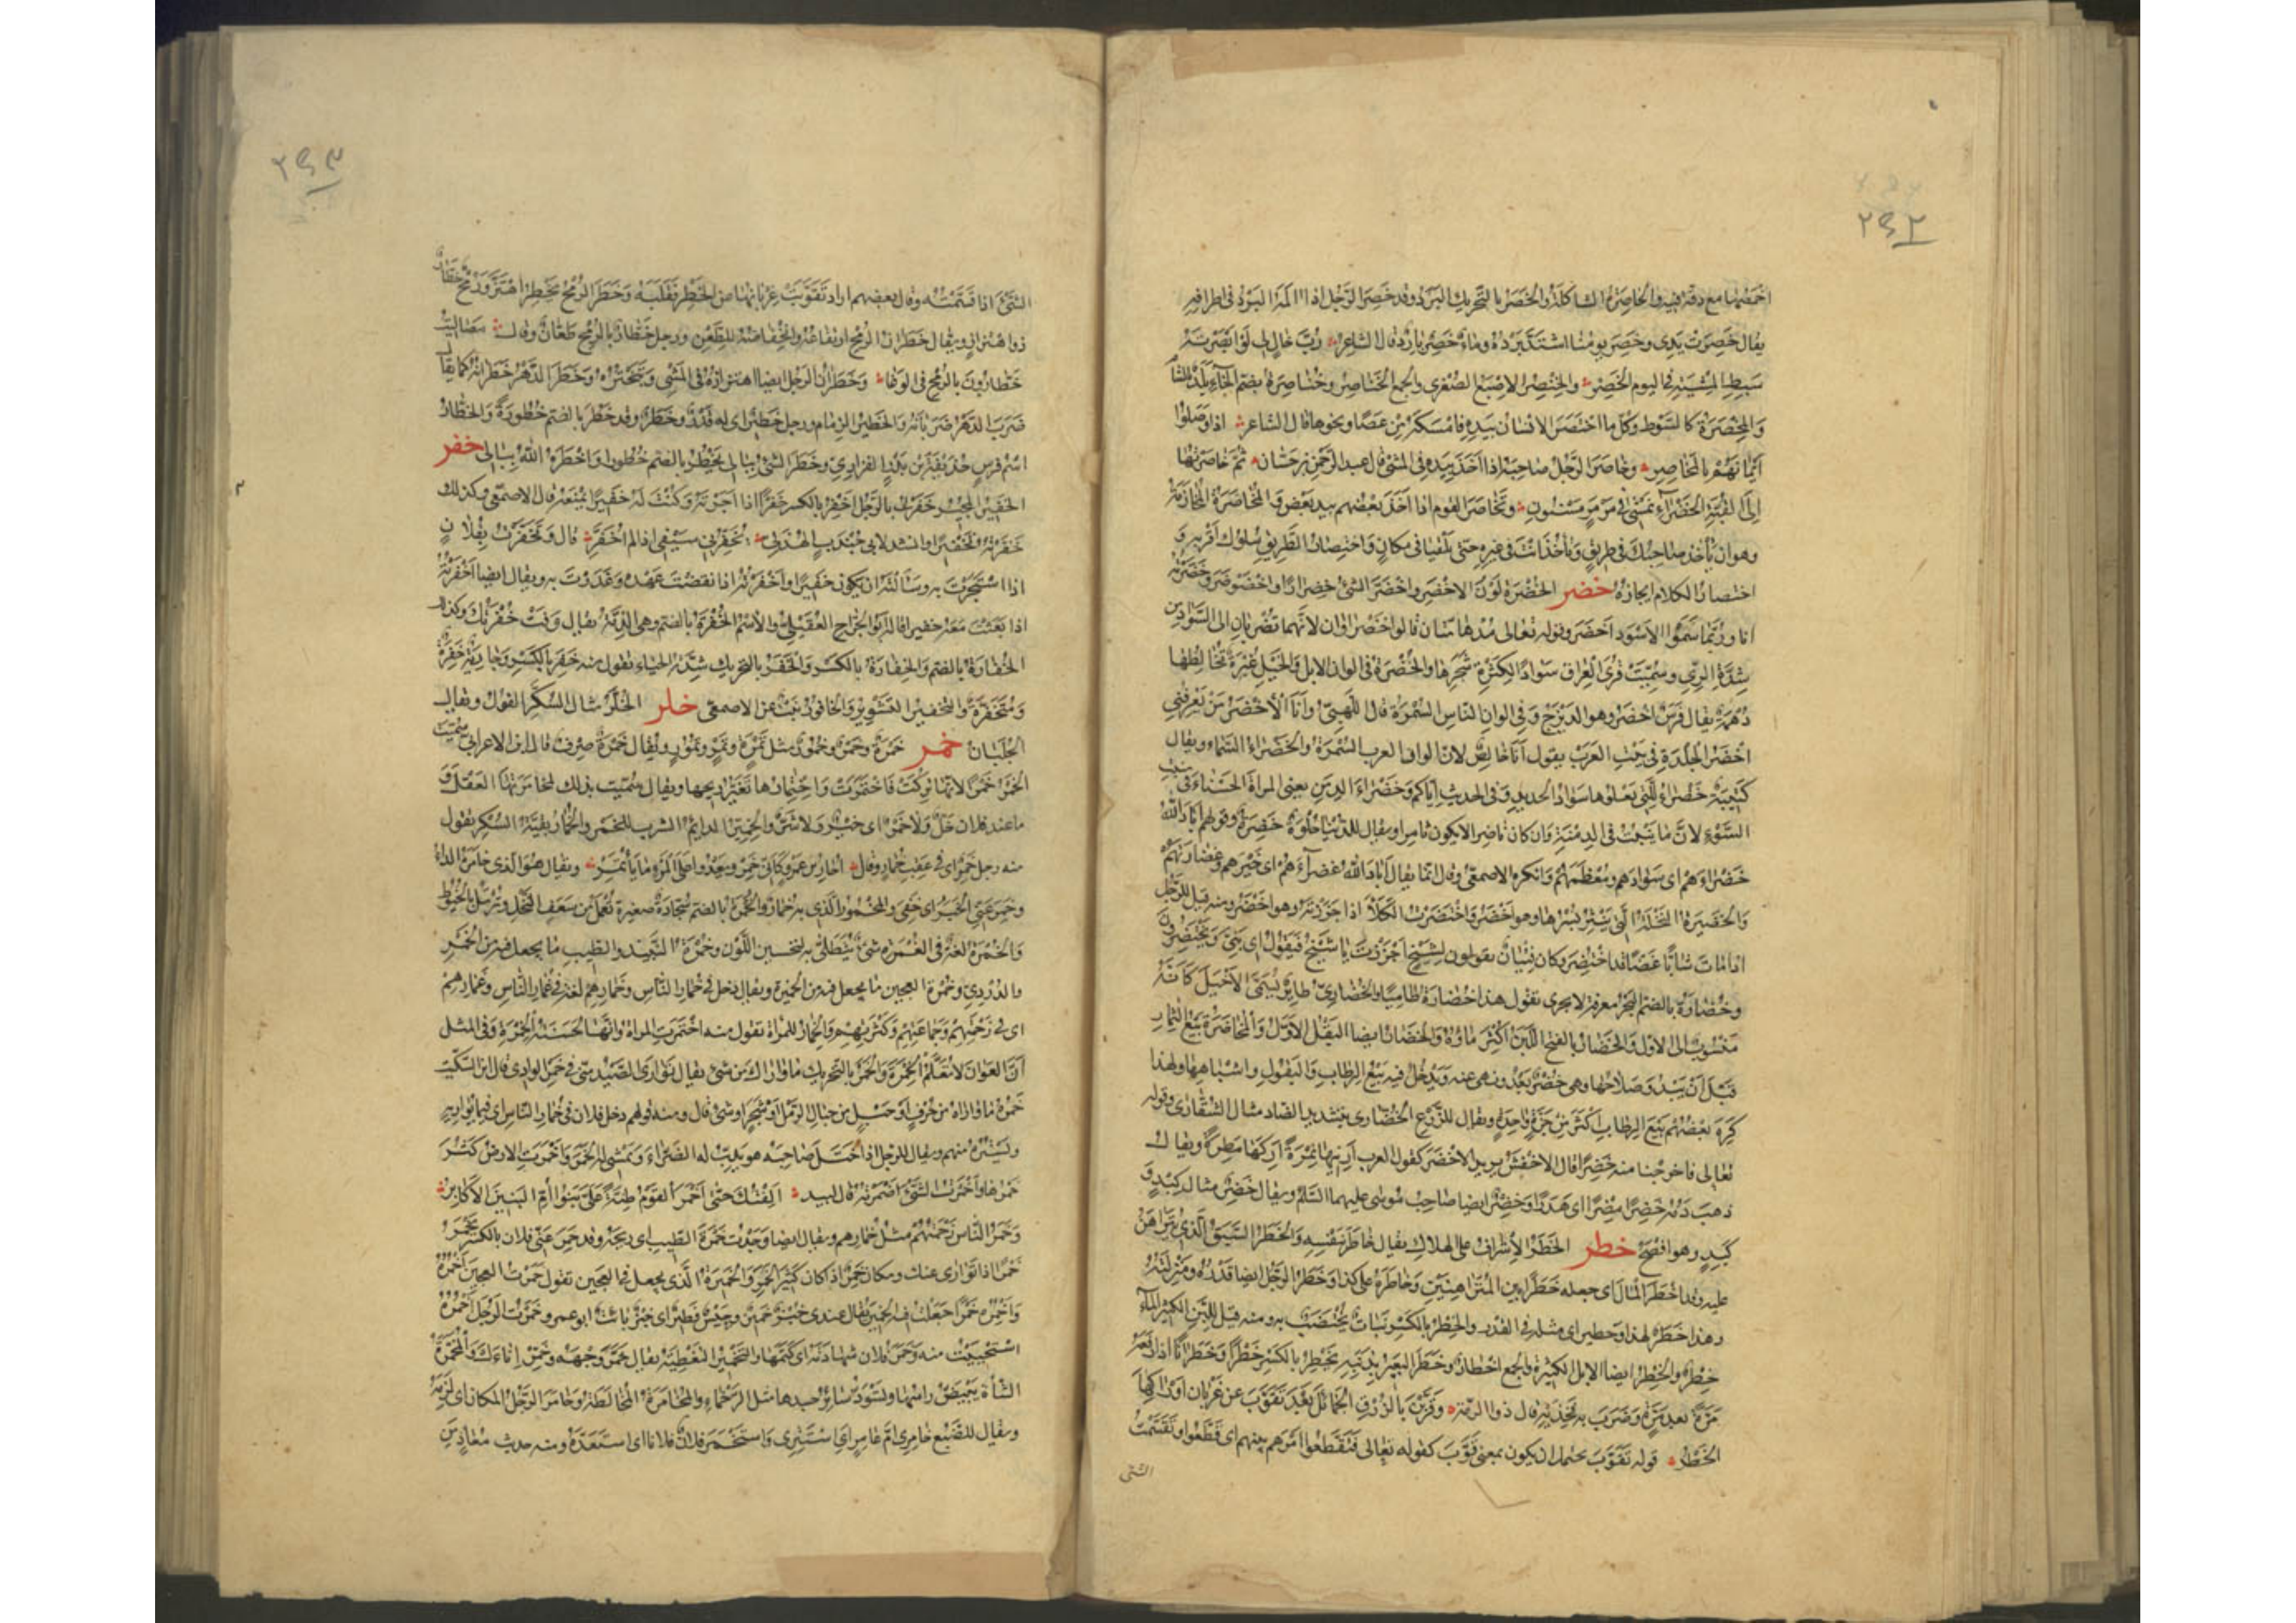 ٢٩٢
اخمصها مع دقة فيه والخاصرة الشاكلة والخصر بالتحريك البرد وقد خصر الرجل اذا آلمه البرد في اطرافه
يقال خصرت يدي وخصر يومنا اشتد برده وماء خصر بارد قال الشاعر رب خال لي لو ابصرته
سبط المشية في اليوم الخصر والخنصر الاصبع الصغرى والجمع الخناصر وخناصرة بضم الخاء بلد بالشأم
والمخصرة كالسوط وكل ما اختصر الانسان بيده فامسكه من عصا ونحوها قال الشاعر اذا وصلوا
ايمانهم بالمخاصر وخاصر الرجل صاحبه اذا اخذ بيده في المشي قال عبد الرحمن بن حسان ثم خاصرتها
الى القبة الخضراء تمشي في مرمر مسنون وتخاصر القوم اذا اخذ بعضهم بيد بعض والمخاصرة المخازمة
وهو ان يأخذ صاحبك في طريق وتأخذ انت في غيره حتى تلتقيا في مكان واختصار الطريق سلوك اقربه و
اختصار الكلام ايجازه خضر الخضرة لون الاخضر واخضر الشئ اخضرارا واخضوضر وخضرته
انا وربما سموا الاسود اخضر وقوله تعالى مدهامتان قالوا خضراوان لانهما تضربان الى السواد من
شدة الري وسميت قرى العراق سوادا لكثرة شجرها والخضرة في الوان الابل والخيل غبرة تخالطها
دهمة يقال فرس اخضر وهو الديزج وفي الوان الناس السمرة قال اللهبي وانا الاخضر من يعرفني
اخضر الجلدة في بيت العرب يقول انا خالص لان الوان العرب السمرة والخضراء السماء ويقال
كتيبة خضراء للتي يعلوها سواد الحديد وفي الحديث اياكم وخضراء الدمن يعني المراة الحسناء في منبت
السوء لان ما ينبت في الدمنة وان كان ناضرا لا يكون ثامرا ويقال للدنيا حلوة خضرة وقولهم اباد الله
خضراءهم اي سوادهم ومعظمهم وانكره الاصمعي وقال انما يقال اباد الله غضراءهم اي خيرهم وغضارتهم
والخضيرة النخلة التي ينتثر بسرها وهو اخضر واختضرت الكلأ اذا جززته وهو اخضر ومنه قيل للرجل
اذا مات شابا غضا قد اختضر وكان فتيان يقولون لشيخ اجززت يا شيخ فيقول اي بني وتختضرون
وخضارة بالضم البحر معرفة لا يجرى تقول هذا خضارة طاميا والخضاري طاير يسمى الاخيل كانه
منسوب الى الاول والخضار بالفتح اللبن اكثر ماؤه والخضار ايضا البقل الاول والمخاضرة بيع الثمار
قبل ان يبدو صلاحها وهي خضر بعد ونهى عنه ويدخل فيه بيع الرطاب والبقول واشباهها ولهذا
كره بعضهم بيع الرطاب اكثر من جزة واحدة ويقال للزرع الخضارى بتشديد الضاد مثال الشقارى وقوله
تعالى فاخرجنا منه خضرا قال الاخفش يريد الاخضر كقول العرب ارنيها نمرة اركها مطرة ويقال
ذهب دمه خضرا مضرا اي هدرا وخضر ايضا صاحب موسى عليهما السلم ويقال خضر مثال كبد و
كبد وهو افصح خطر الخطر الاشراف على الهلاك يقال خاطر بنفسه والخطر السبق الذي يتراهن
عليه وقد اخطر المال اي جعله خطرا بين المتراهنين وخاطره على كذا وخطر الرجل ايضا قدره ومنزلته
وهذا خطر لهذا وخطير اي مثله في القدر والخطر بالكسر نبات يختضب به ومنه قيل للبن الكثير الماء
خطر والخطر ايضا الابل الكثيرة والجمع اخطار وخطر البعير بذنبه يخطر بالكسر خطرا وخطرانا اذا رفعه
مرة بعد مرة وضرب به فخذيه قال ذو الرمة وقربن بالزرق الجمائل بعد تقوب عن غربان اوراكها
الخطر قوله تقوب يحتمل ان يكون بمعنى قوب كقوله تعالى فتقطعوا امرهم بينهم اي قطعوا وتقسمت
الشئ
٢٩٣
الشئ اذا قسمته وقال بعضهم اراد تقوبت غربانها من الخطر فقلبه وخطر الرمح يخطر اهتز ورمح خطار
ذو اهتزاز ويقال خطران الرمح ارتفاعه وانخفاضه للطعن ورجل خطار بالرمح طعان وقال مصاليت
خطارون بالرمح في الوغا وخطران الرجل ايضا اهتزازه في المشي وتبختره وخطر الدهر خطرانه كما يقال
ضرب الدهر ضربانه والخطير الزمام ورجل خطير اي له قدر وخطر وقد خطر بالضم خطورة والخطار
اسم فرس حذيفة بن بدر الفزاري وخطر الشئ ببالي يخطر بالضم خطورا واخطره الله ببالي خفر
الخفير المجير خفرت بالرجل اخفر بالكسر خفرا اذا اجرته وكنت له خفيرا تمنعه قال الاصمعي وكذلك
خفرته تخفيرا وانشد لابي جندب الهذلي يخفرني سيفي اذا لم اخفر قال وتخفرت بفلان
اذا استجرت به وسألته ان يكون خفيرا واخفرته اذا نقضت عهده وغدرت به ويقال ايضا اخفرته
اذا بعثت معه خفيرا قاله ابو الجراح العقيلي والاسم الخفرة بالضم وهي الذمة يقال وفت خفرتك وكذلك
الخفارة بالضم والخفارة بالكسر والخفر بالتحريك شدة الحياء تقول منه خفر بالكسر وجارية خفرة
ومتخفرة والتخفير التشوير والخافور نبت عن الاصمعي خلر الخلر مثال السكر الفول ويقال
الجلبان خمر خمرة وخمر وخمور مثل تمرة وتمر وتمور ويقال خمرة صرف قال ابن الاعرابي سميت
الخمر خمرا لانها تركت فاختمرت واختمارها تغير ريحها ويقال سميت بذلك لمخامرتها العقل و
ما عند فلان خل ولا خمر اي خير ولا شر والخمير الدائم الشرب للخمر والخمار بقية السكر تقول
منه رجل خمر اي في عقب خمار وقال احار بن عمرو كاني خمر ويعدو على المرء ما يأتمر ويقال هو الذي خامره الداء
وخمر عني الخبر اي خفي والمخمور الذي به خمار والخمرة بالضم سجادة صغيرة تعمل من سعف النخل وترمل بالخيوط
والخمرة لغة في الغمرة شئ يتطلى به لتحسين اللون وخمرة النبيذ والطيب ما يجعل فيه من الخمر
والدردي وخمرة العجين ما يجعل فيه من الخميرة ويقال دخل في خمار الناس وخمارهم لغة في غمار الناس وغمارهم
اي في زحمتهم وجماعتهم وكثرتهم والخمار للمراة تقول منه اختمرت المراة وانها لحسنة الخمرة وفي المثل
ان العوان لا تعلم الخمرة والخمر بالتحريك ما واراك من شئ يقال توارى الصيد مني في خمر الوادي قال ابن السكيت
خمره ما واراه من جرف او حبل من حبال الرمل او شجر او شئ قال ومنه قولهم دخل فلان في خمار الناس اي فيما يواريه
ويستره منهم ويقال للرجل اذا ختل صاحبه هو يدب له الضراء ويمشي له الخمر واخمرت الارض كثر
خمرها واخمرت الشئ اضمرته قال لبيد الفتك حتى اخمر القوم ظنة على بنوا ام البنين الاكابر
وخمر الناس زحمتهم مثل خمارهم ويقال ايضا وجدت خمرة الطيب اي ريحه وقد خمر عني فلان بالكسر يخمر
خمرا اذا توارى عنك ومكان خمر اذا كان كثير الخمر والخميرة الذي يجعل في العجين تقول خمرت العجين اخمره
واخمره خمرا جعلت فيه الخمير يقال عندي خبز خمير وحيس فطير اي خبز بائت ابو عمرو خمرت الرجل اخمره
استحييت منه وخمر فلان شهادته اي كتمها والتخمير التغطية يقال خمر وجهه وخمر اناءك والمخمرة
الشاة يبيض راسها ويسود سائر جسدها مثل الرخماء والمخامرة المخالطة وخامر الرجل المكان اي لزمه
ويقال للضبع خامري ام عامر اي استتري واستخمر فلان فلانا اي استعبده ومنه حديث معاذ من